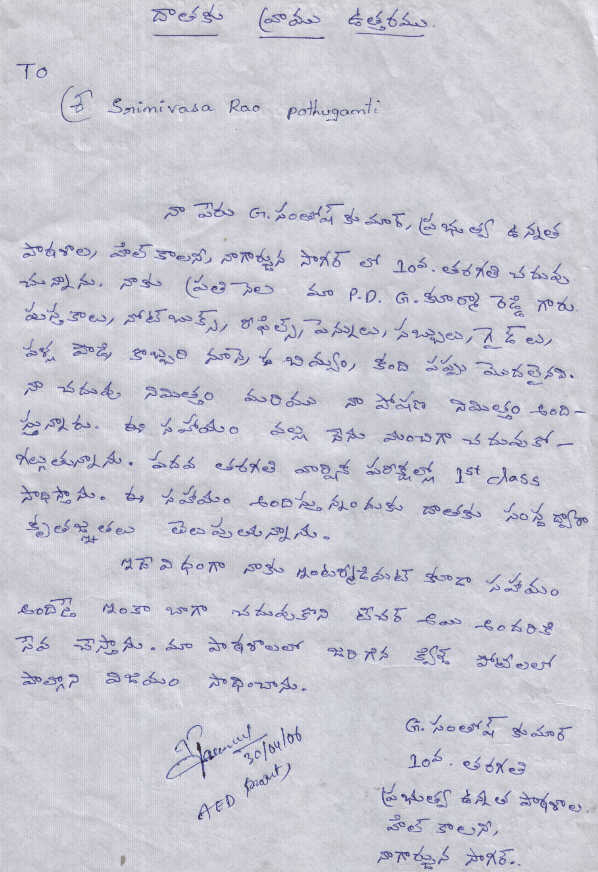 దాతకు వ్రాయు ఉత్తరము.
To
శ్రీ Srinivasa Rao Pothuganti
నా పేరు G. సంతోష్ కుమార్, ప్రభుత్వ ఉన్నత
పాఠశాల, హిల్ కాలని, నాగార్జున సాగర్ లో 10వ. తరగతి చదువు
చున్నాను. నాకు ప్రతి నెల మా P.D. G. కూర్మా రెడ్డి గారు
పుస్తకాలు, నోట్ బుక్స్, రిఫిల్స్, పెన్నులు, సబ్బులు, గైడ్ లు,
పళ్ళ పొడి, కొబ్బరి నూనె, బియ్యం, కంది పప్పు మొదలైనవి.
నా చదువు నిమిత్తం మరియు నా పోషణ నిమిత్తం అంది-
స్తున్నారు. ఈ సహాయం వల్ల నేను మంచిగా చదువుకో-
గల్గుతున్నాను. పదవ తరగతి వార్షిక పరీక్షల్లో 1st class
సాధిస్తాను. ఈ సహాయం అందిస్తున్నందుకు దాతకు సంస్థ ద్వారా
కృతజ్ఞతలు తెలుపుతున్నాను.
ఇదే విధంగా నాకు ఇంటర్మీడియట్ కూడా సహాయం
అందిస్తే ఇంకా బాగా చదువుకొని టీచర్ అయి అందరికి
సేవ చేస్తాను. మా పాఠశాలలో జరిగిన క్విజ్ పోటీలలో
పాల్గొని విజయం సాధించాను.
30/04/06
AED
G. సంతోష్ కుమార్
10వ. తరగతి
ప్రభుత్వ ఉన్నత పాఠశాల.
హిల్ కాలని,
నాగార్జున సాగర్..